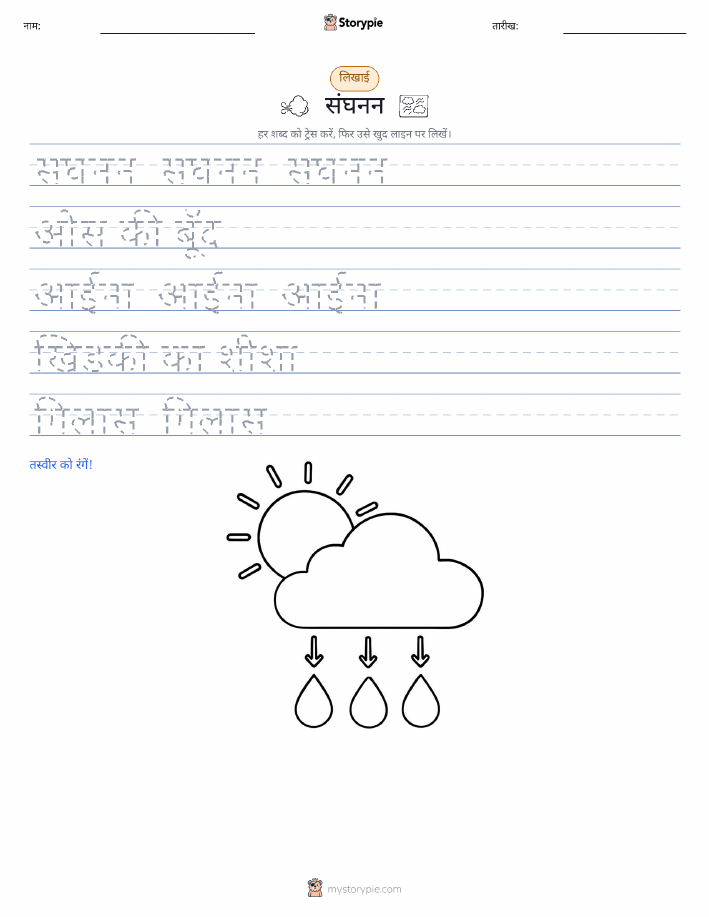 नाम: Storypie तारीख:
लिखाई
संघनन
हर शब्द को ट्रेस करें, फिर उसे खुद लाइन पर लिखें।
संघनन संघनन संघनन
ओस की बूँद
आईना आईना आईना
खिड़की का शीशा
गिलास गिलास
तस्वीर को रंगें!
mystorypie.com